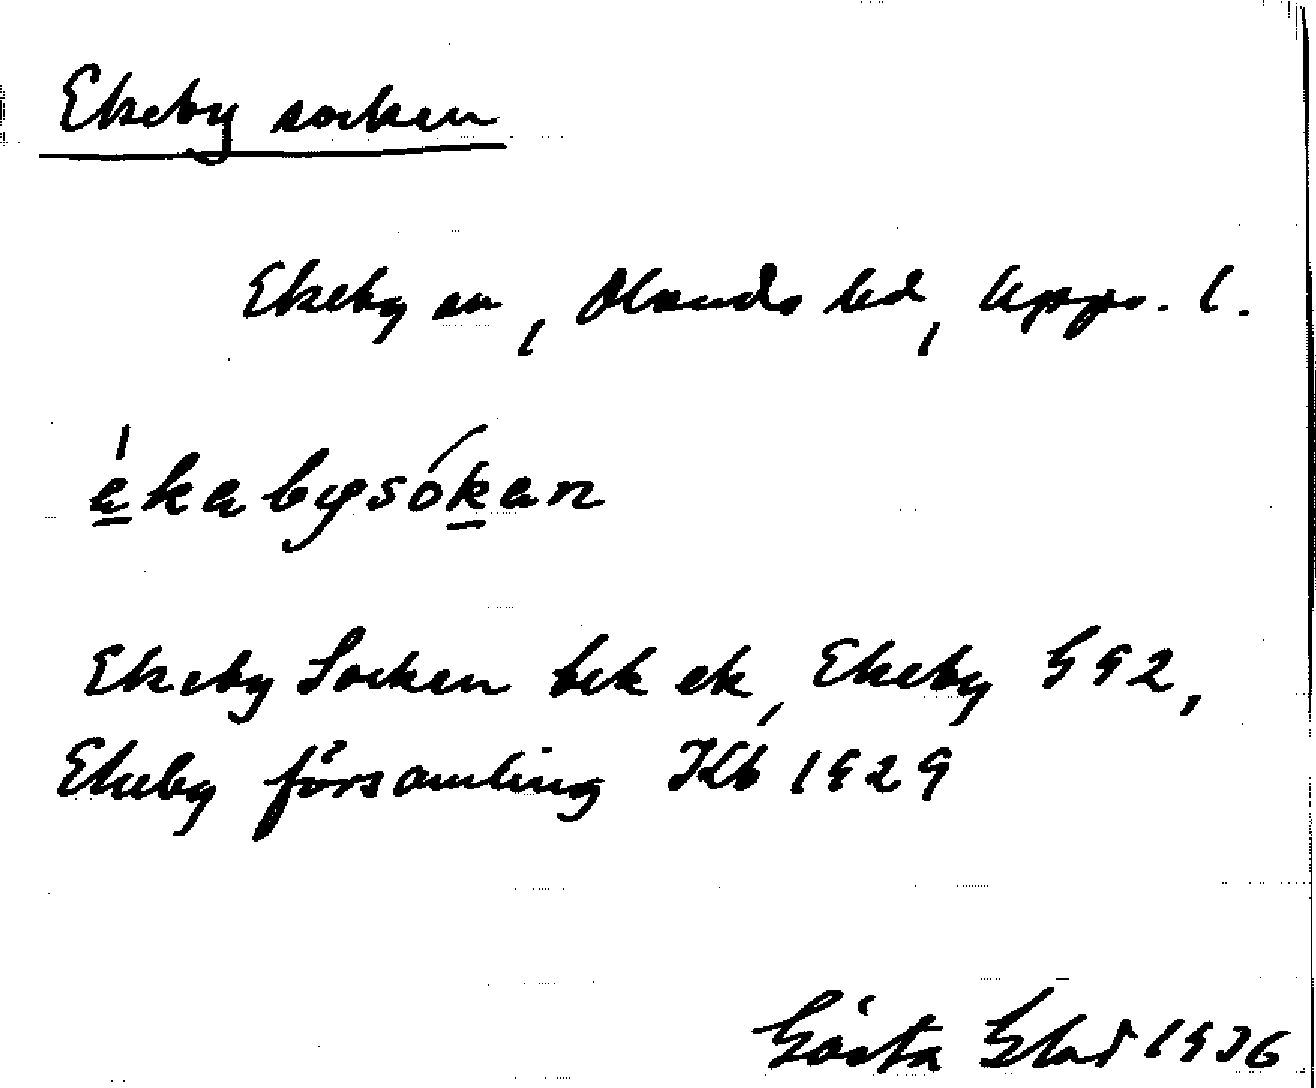 Ekeby socken
Ekeby sn, Olands hd, Upps. l.
ékabysókan
Ekeby Socken bek ek, Ekeby G 92,
Ekeby församling Kb 1929
Gösta 1936